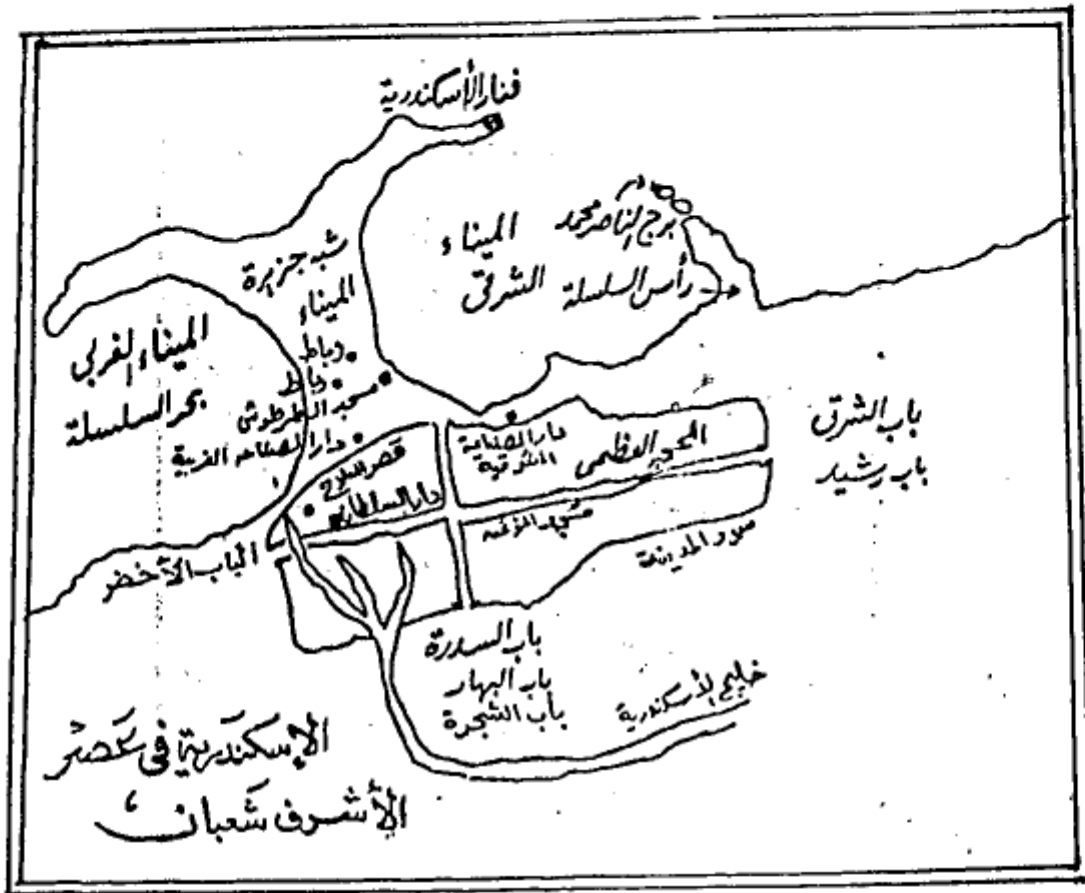 فنار الأسكندرية
برج الناصر محمد
الميناء
الشرقى
رأس السلسلة
شبه جزيرة
الميناء
الميناء الغربى
بحر السلسلة
وباط
وباط
مسجد الطرطوشى
دار الصناعة الغربية
دار الصناعة
الشرقية
المحجر العظمى
قصر السلاح
دار السلطان
باب الشرق
باب رشيد
سور المدينة
الباب الأخضر
باب السدرة
باب البهار
باب الشجرة
خليج الأسكندرية
الإسكندرية فى عصر
الأشرف شعبان